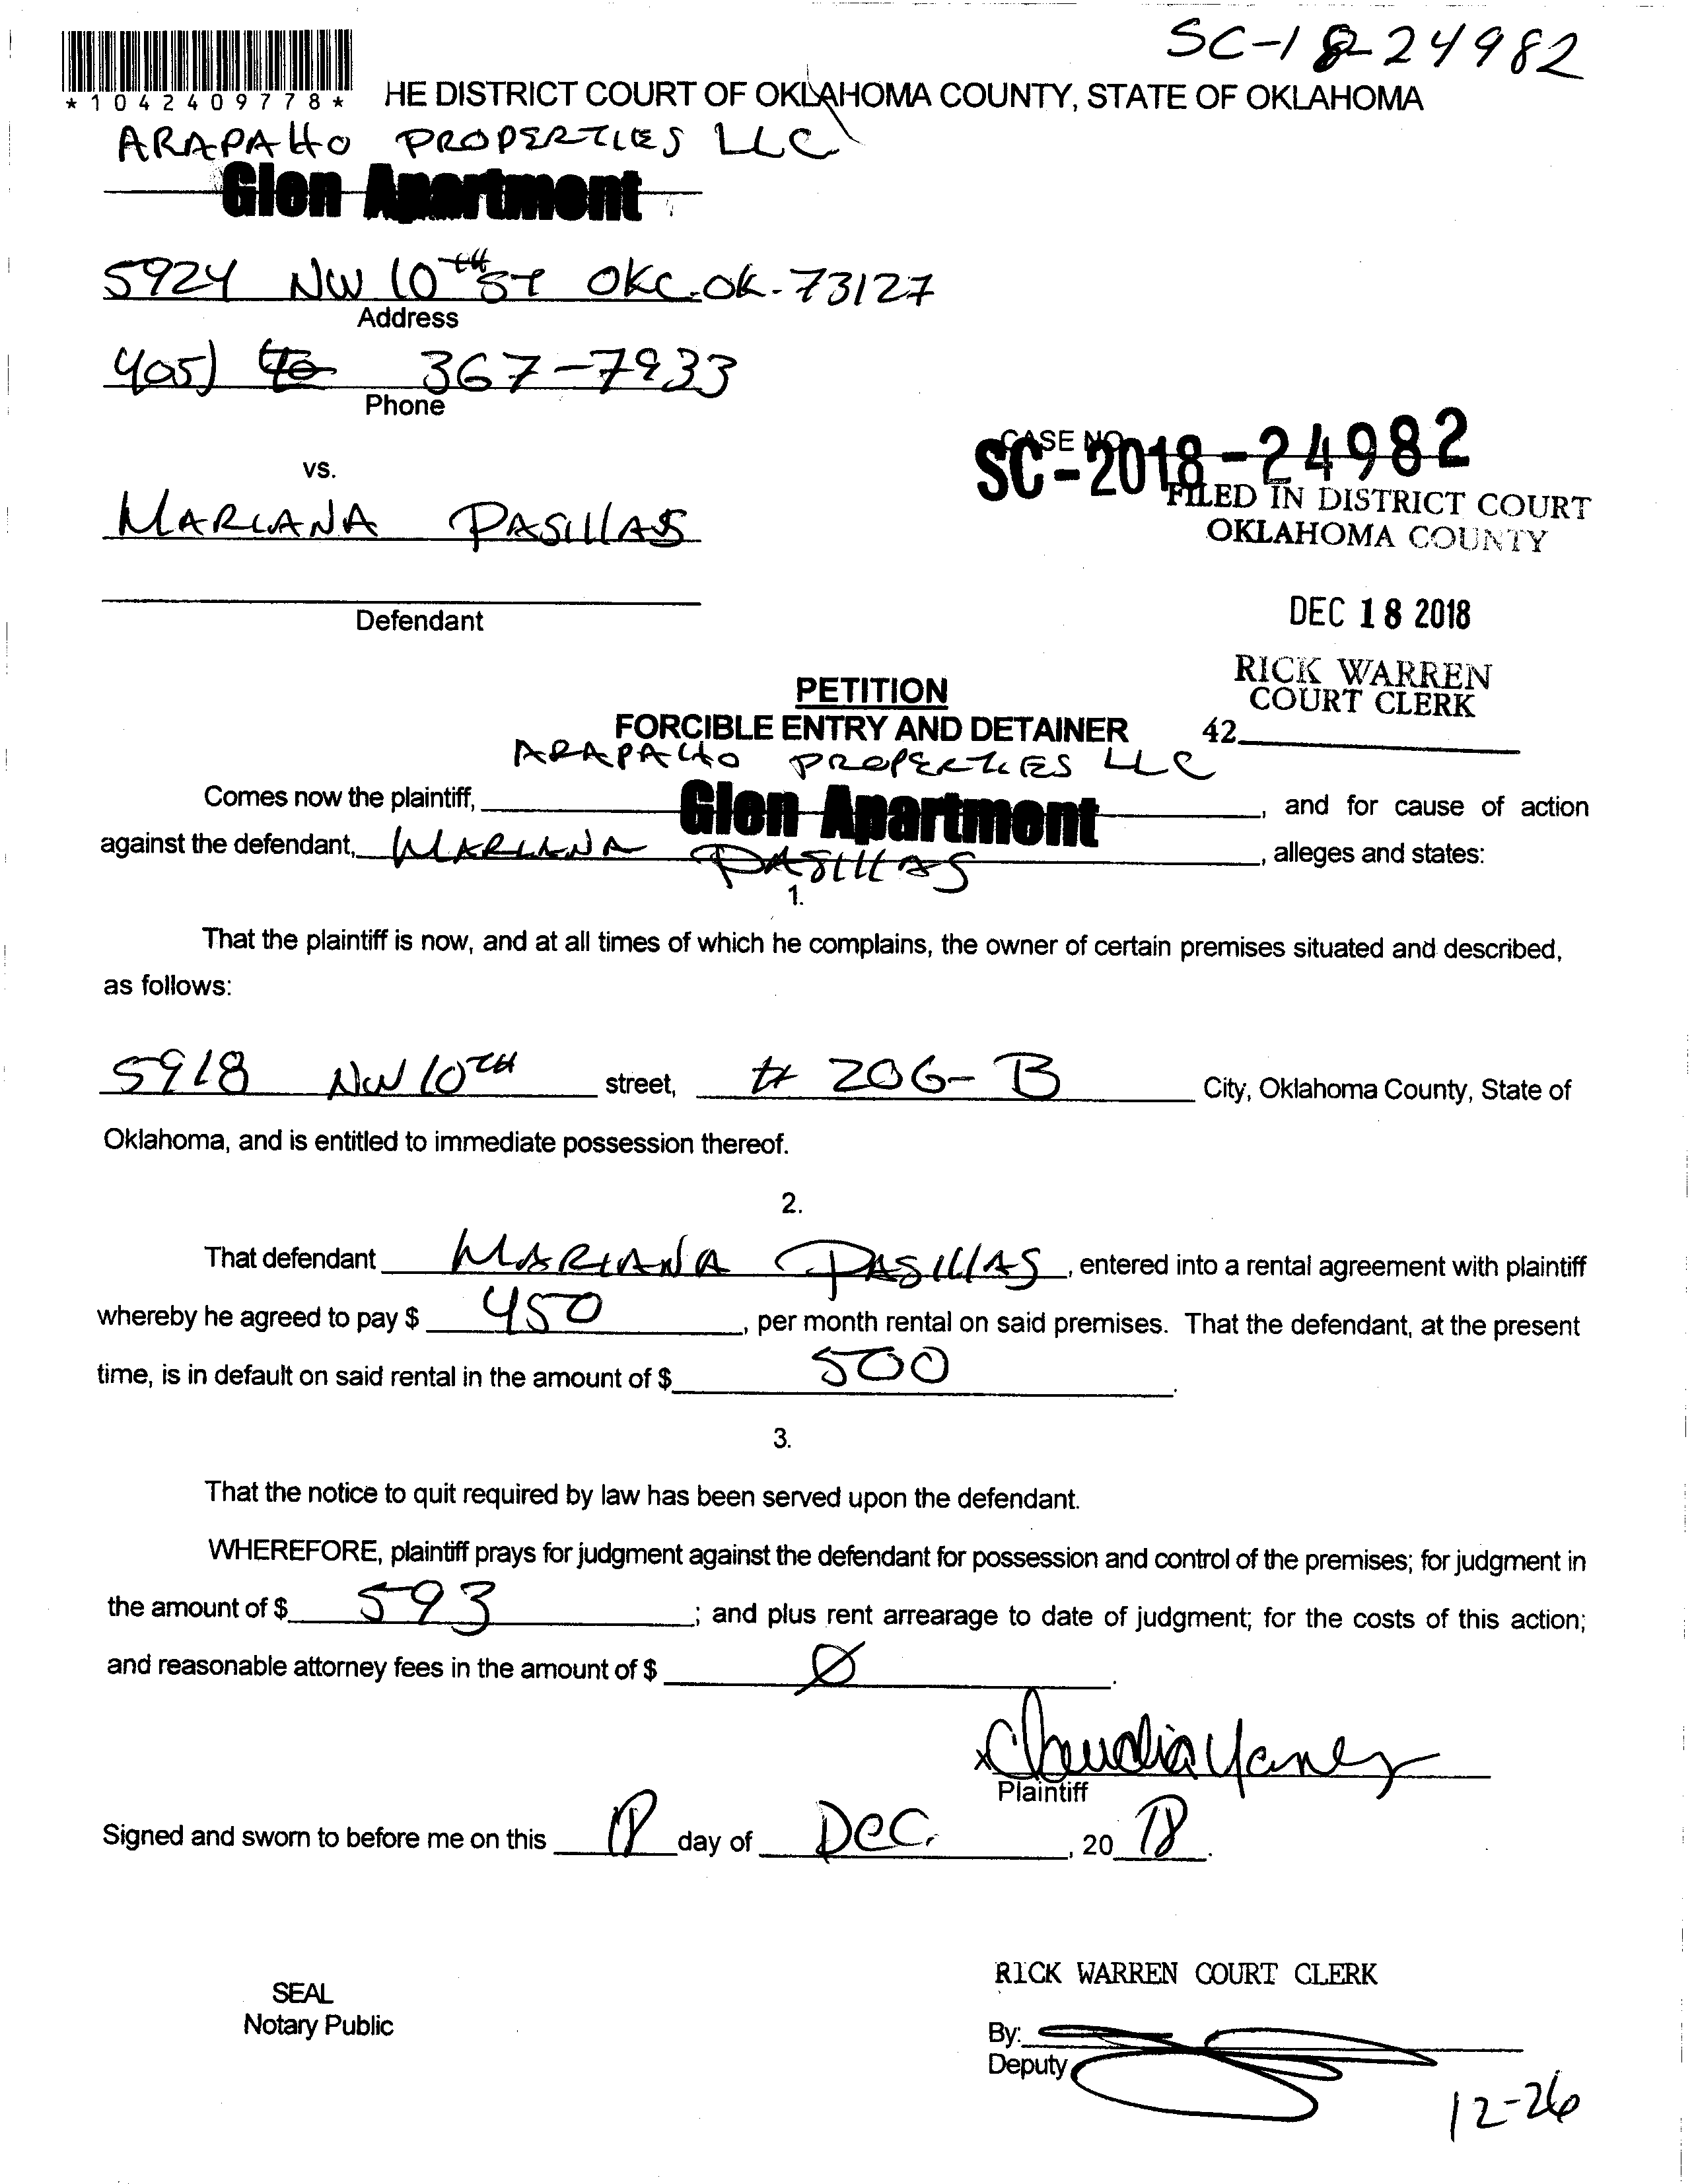 SC-18-24982
*1042409778*
HE DISTRICT COURT OF OKLAHOMA COUNTY, STATE OF OKLAHOMA
ARAPAHO PROPERTIES LLC
Glen Apartment
5924 NW 10TH ST OKC-OK-73127
Address
405) 367-7933
Phone
CASE NO
SC-2018-24982
vs.
FILED IN DISTRICT COURT
OKLAHOMA COUNTY
MARIANA PASILLAS
Defendant
DEC 18 2018
RICK WARREN
COURT CLERK
42
PETITION
FORCIBLE ENTRY AND DETAINER
ARAPAHO PROPERTIES LLC
Comes now the plaintiff, Glen Apartment, and for cause of action
against the defendant, MARIANA PASILLAS, alleges and states:
1.
That the plaintiff is now, and at all times of which he complains, the owner of certain premises situated and described,
as follows:
5918 NW 10TH street, # 206-B City, Oklahoma County, State of
Oklahoma, and is entitled to immediate possession thereof.
2.
That defendant MARIANA PASILLAS, entered into a rental agreement with plaintiff
whereby he agreed to pay $ 450, per month rental on said premises. That the defendant, at the present
time, is in default on said rental in the amount of $ 500.
3.
That the notice to quit required by law has been served upon the defendant.
WHEREFORE, plaintiff prays for judgment against the defendant for possession and control of the premises; for judgment in
the amount of $ 593; and plus rent arrearage to date of judgment; for the costs of this action;
and reasonable attorney fees in the amount of $ Ø.
x Claudia Yanez
Plaintiff
Signed and sworn to before me on this 18 day of Dec., 20 18.
RICK WARREN COURT CLERK
SEAL
Notary Public
By:
Deputy
12-26